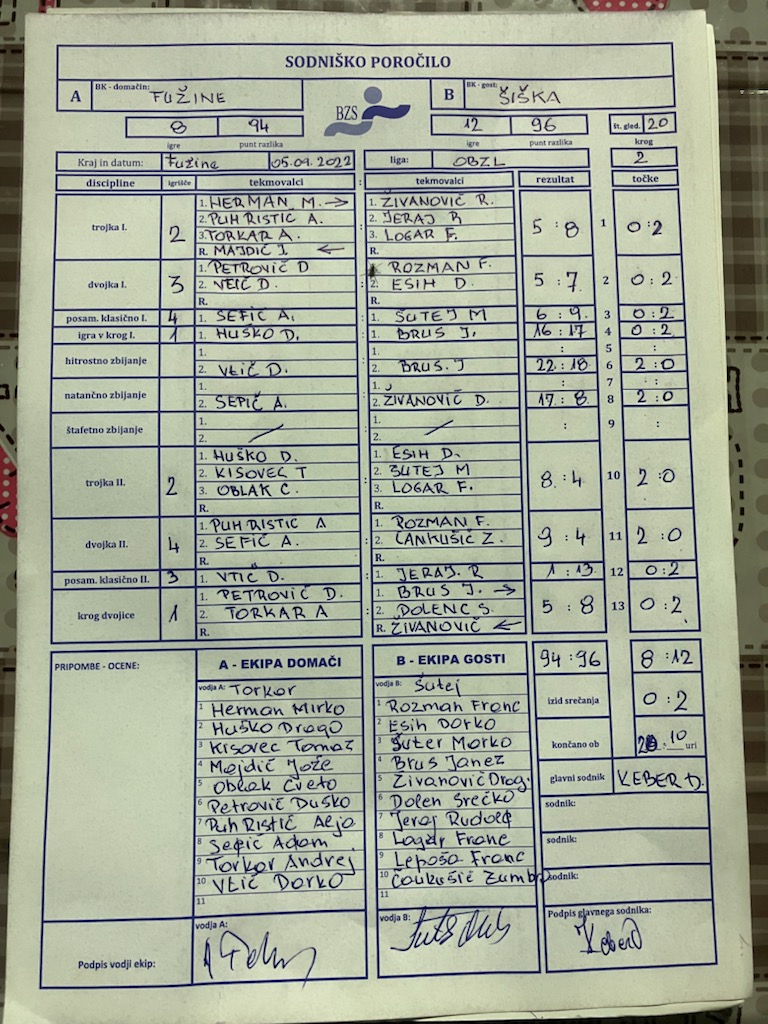 SODNIŠKO POROČILO
A BK - domačin: FUŽINE B BK - gost: ŠIŠKA
8 94 BZS 12 96 št. gled. 20
igre punt razlika igre punt razlika krog
Kraj in datum: Fužine 05.09.2022 liga: OBZL 2
discipline igrišče tekmovalci : tekmovalci rezultat točke
trojka I. 2 5 : 8 1 0 : 2
1. HERMAN M. → 1. ŽIVANOVIČ R.
2. PUH RISTIĆ A. 2. JERAJ R
3. TORKAR A. 3. LOGAR F.
R. MAJDIČ J. ← R.
dvojka I. 3 : 5 : 7 2 0 : 2
1. PETROVIČ D ROZMAN F.
2. VEIĆ D. 2. ESIH D.
R. R.
posam. klasično I. 4 1. SEFIĆ A. : 1. ŠUTEJ M 6 : 9 3 0 : 2
igra v krog I. 1 1. HUŠKO D. : 1. BRUS J. 16 : 17 4 0 : 2
hitrostno zbijanje 1. : 1. : 5 :
2. VEIĆ D. 2. BRUS. J 22 : 18 6 2 : 0
natančno zbijanje 1. : 1. : 7 :
2. SEPIĆ A. 2. ŽIVANOVIČ D. 17 : 8 8 2 : 0
štafetno zbijanje 1. : 1. : 9 :
2. / 2. /
trojka II. 2 : 8 : 4 10 2 : 0
1. HUŠKO D. 1. ESIH D.
2. KISOVEC T 2. ŠUTEJ M
3. OBLAK C. 3. LOGAR F.
R. R.
dvojka II. 4 : 9 : 4 11 2 : 0
1. PUH RISTIĆ A 1. ROZMAN F.
2. SEFIĆ A. 2. ČANKUŠIČ Z.
R. R.
posam. klasično II. 3 1. VTIĆ D. : 1. JERAJ. R 1 : 13 12 0 : 2
krog dvojice 1 : 5 : 8 13 0 : 2
1. PETROVIČ D. 1. BRUS J. →
2. TORKAR A 2. DOLENC S.
R. R. ŽIVANOVIČ ←
PRIPOMBE - OCENE: A - EKIPA DOMAČI B - EKIPA GOSTI 94 : 96 8 : 12
vodja A: Torkar vodja B: Šutej izid srečanja 0 : 2
1 Herman Mirko 1 Rozman Franc
2 Huško Drago 2 Esih Darko
3 Krsovec Tomaž 3 Šuter Marko končano ob 20 : 10 uri
4 Majdič Jože 4 Brus Janez
5 Oblak Cveto 5 Živanovič Drag. glavni sodnik KEBER D.
6 Petrovič Duško 6 Dolen Srečko sodnik:
7 Puh Ristić Aljo 7 Jeraj Rudolf
8 Sepić Adam 8 Logar Franc sodnik:
9 Torkar Andrej 9 Leposa Franc
10 Vtić Darko 10 Čankušič sodnik:
11 11
Podpis vodji ekip: vodja A: vodja B: Podpis glavnega sodnika:
Keber D